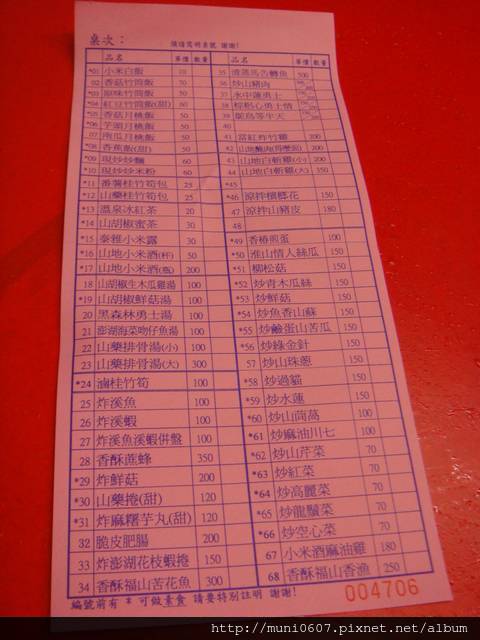 桌次：
煩請寫明桌號 謝謝!
品名 單價 數量
*01 小米白飯 10
02 香菇竹筒飯 70
03 原味竹筒飯 50
*04 紅豆竹筒飯(甜) 60
*05 香菇月桃飯 50
*06 芋頭月桃飯 50
07 南瓜月桃飯 50
*08 香蕉飯(甜) 50
*09 現炒炒麵 60
*10 現炒炒米粉 60
*11 番薯桂竹筍包 25
*12 山藥桂竹筍包 25
*13 溫泉冰紅茶 20
*14 山胡椒蜜茶 30
*15 泰雅小米露 30
*16 山地小米酒(杯) 50
*17 山地小米酒(瓶) 200
18 山胡椒生木瓜雞湯 100
*19 山胡椒鮮菇湯 100
20 黑森林勇士湯 100
21 澎湖海菜吻仔魚湯 100
22 山藥排骨湯(小) 100
23 山藥排骨湯(大) 300
*24 滷桂竹筍 100
25 炸溪魚 100
26 炸溪蝦 100
27 炸溪魚溪蝦併盤 100
28 香酥蔗蜂 350
*29 炸鮮菇 200
*30 山藥捲(甜) 120
*31 炸麻糬芋丸(甜) 120
32 脆皮肥腸 200
33 炸澎湖花枝蝦捲 150
34 香酥福山苦花魚 300
品名 單價 數量
35 清蒸馬告鱒魚 500
36 炒山豬肉
37 水中蓮勇士
38 棕梠心勇士情
39
40
41 富紅炸竹雞 300
42 山地醃肉 200
43 山地白斬雞(小) 200
44 山地白斬雞(大) 350
*45
*46 涼拌檳榔花 150
47 涼拌山豬皮 180
48
*49 香椿煎蛋 100
*50 淮山情人絲瓜 150
*51 柳松菇 150
*52 炒青木瓜絲 150
*53 炒鮮菇 150
*54 炒魚香山蘇 150
*55 炒鹹蛋山苦瓜 150
*56 炒綠金針 150
57 炒山珠蔥 150
*58 炒過貓 150
*59 炒水蓮 150
*60 炒山茼萵 100
*61 炒麻油川七 100
*62 炒山芹菜 70
*63 炒紅菜 70
*64 炒高麗菜 70
*65 炒龍鬚菜 70
*66 炒空心菜 70
67 小米酒麻油雞 180
68 香酥福山香漁 250
編號前有 * 可做素食 請要特別註明 謝謝!
004706
http://muni0607.pixnet.net/album